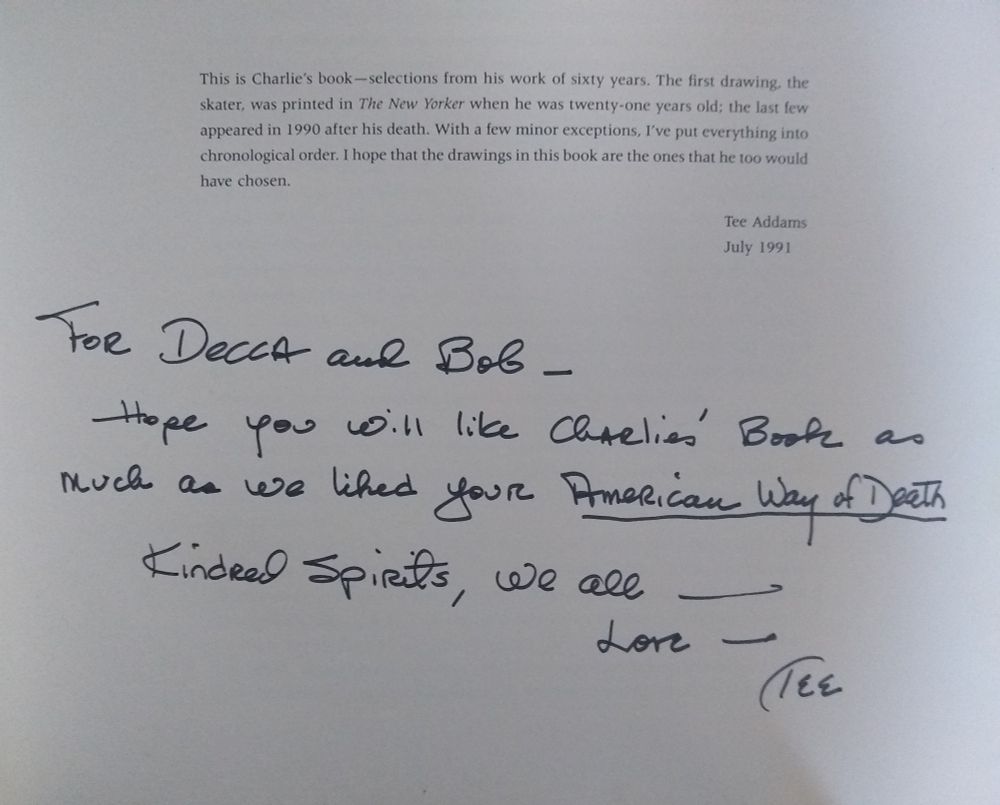 This is Charlie's book—selections from his work of sixty years. The first drawing, the
skater, was printed in The New Yorker when he was twenty-one years old; the last few
appeared in 1990 after his death. With a few minor exceptions, I've put everything into
chronological order. I hope that the drawings in this book are the ones that he too would
have chosen.
Tee Addams
July 1991
For Decca and Bob –
Hope you will like Charlies' Book as
much as we liked your American Way of Death
Kindred Spirits, we all —
Love —
Tee